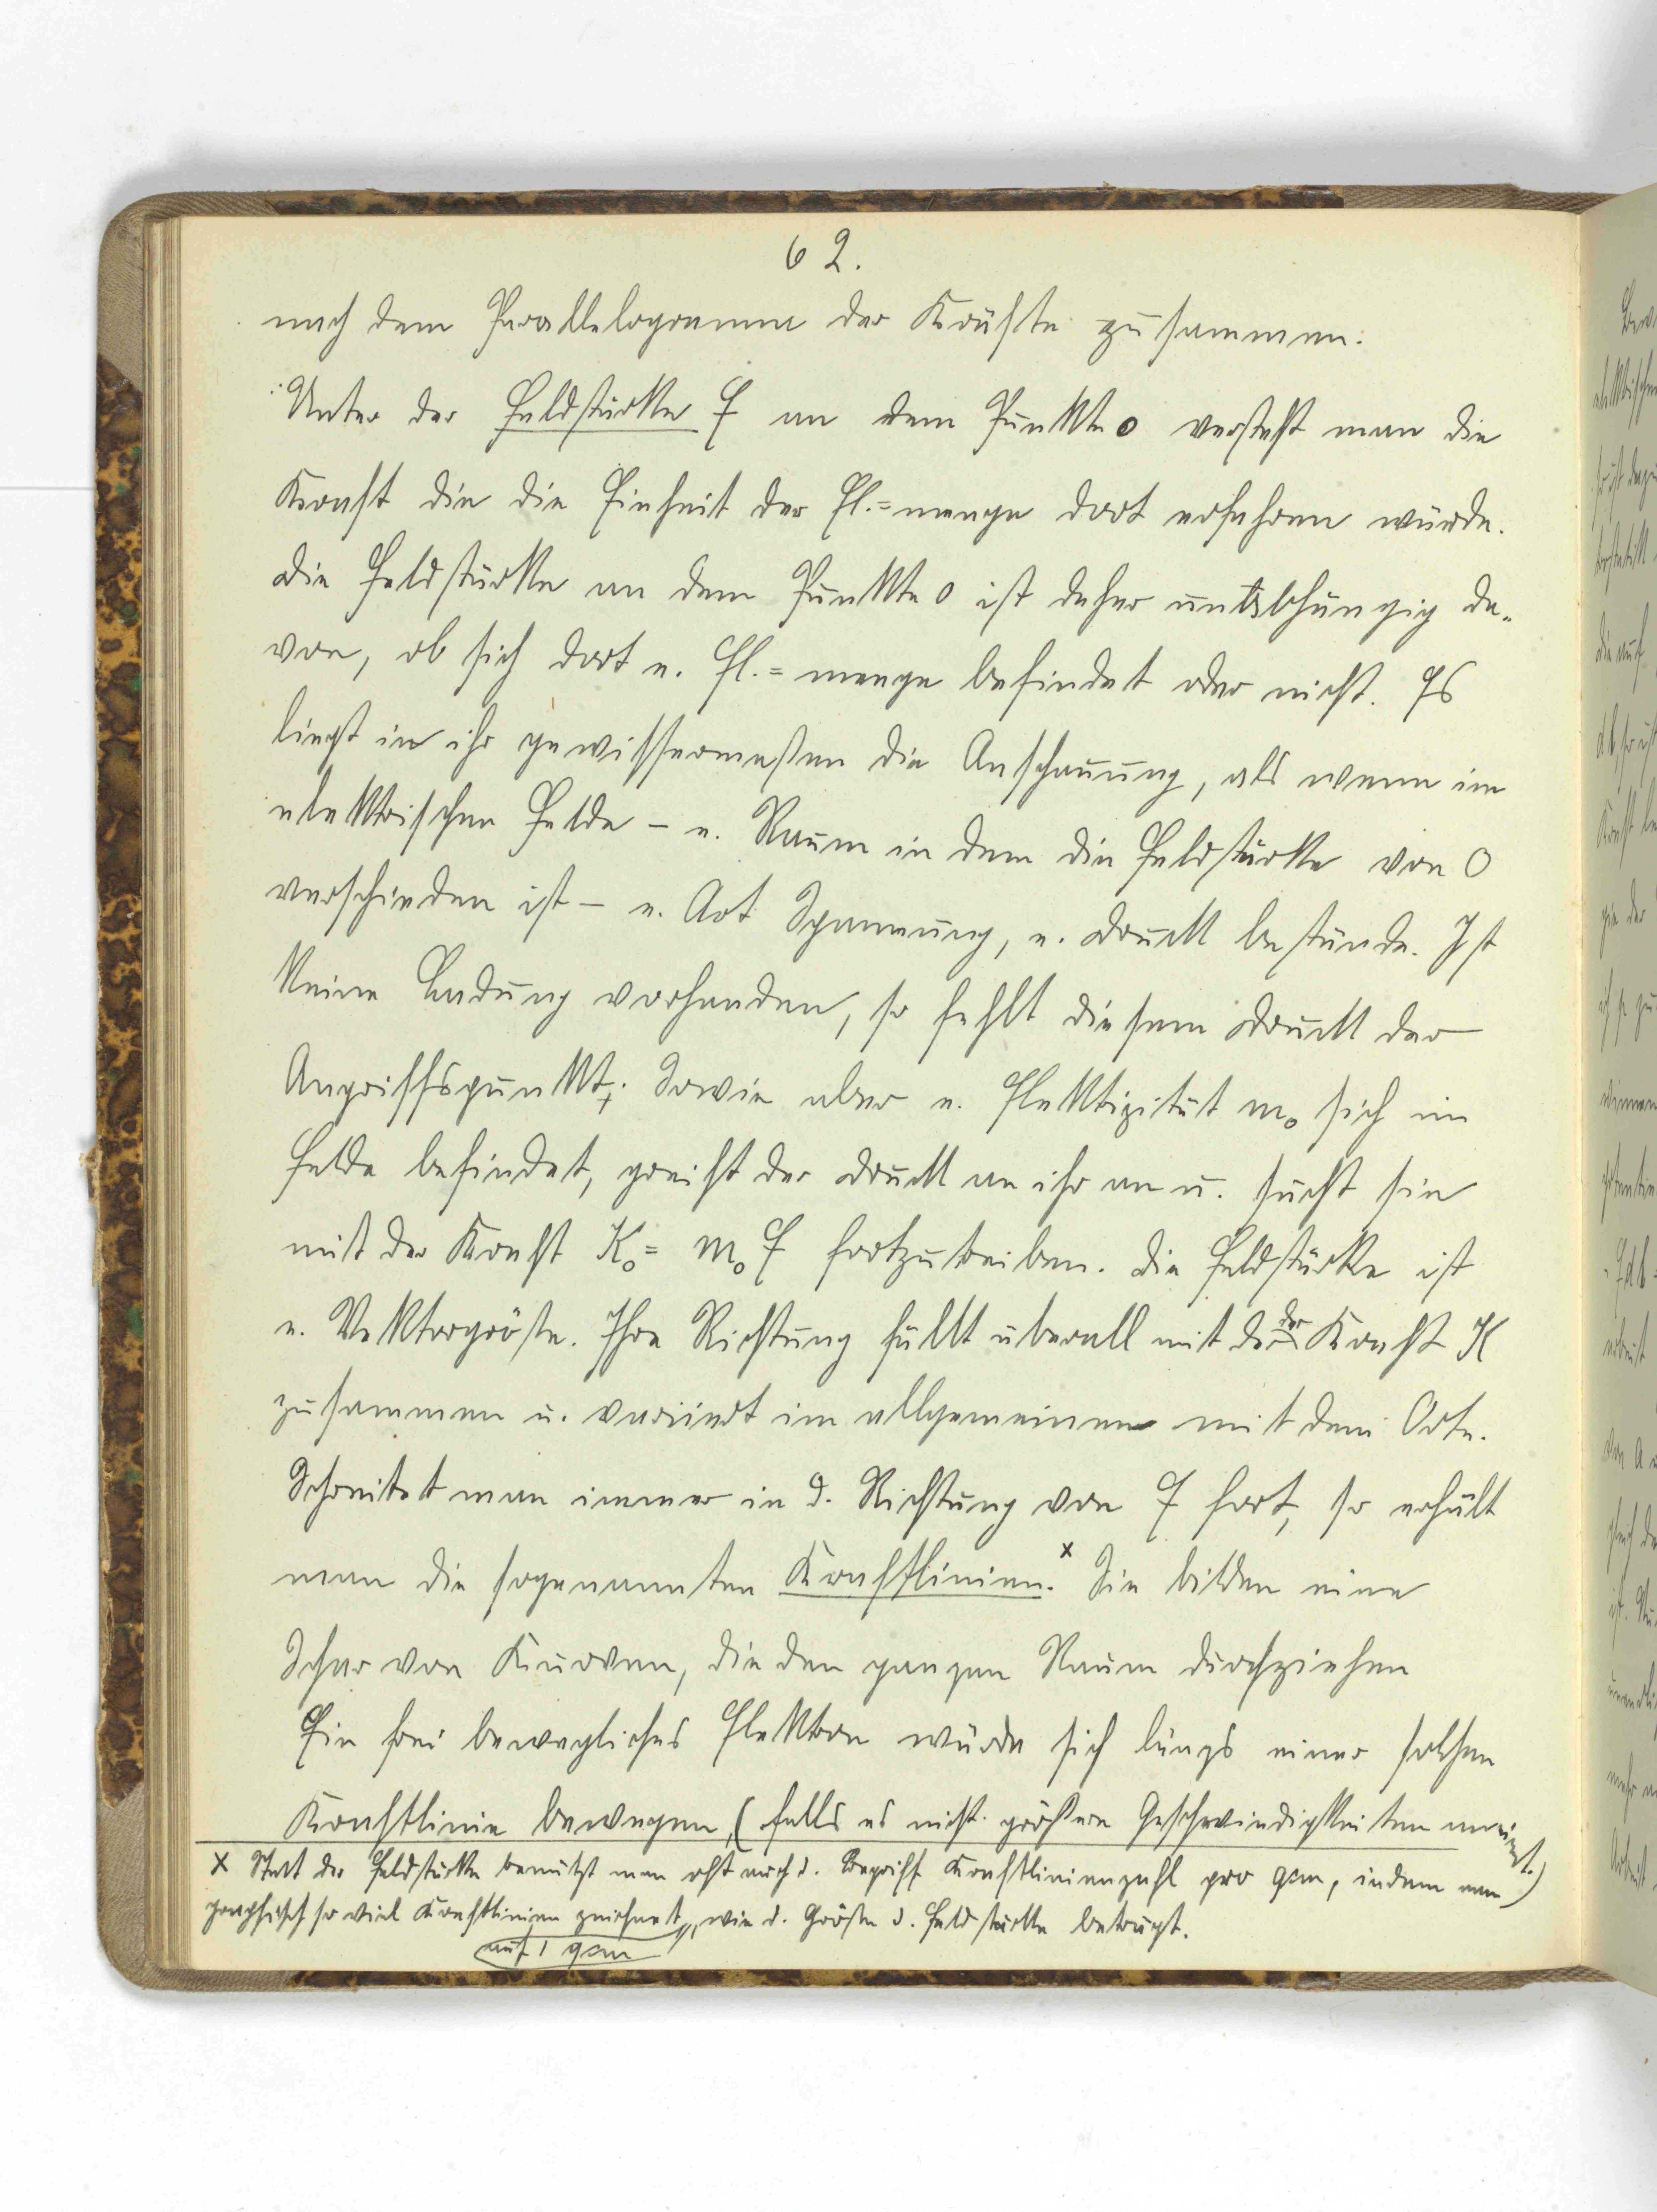 62.
nach dem Parallelogramm der Kräfte zusammen.
Unter der Feldstärke E an dem Punkte o versteht man die
Kraft die die Einheit der El.=menge dort erfahren würde.
Die Feldstärke an dem Punkte o ist daher unabhängig da„
von, ob sich dort e. El.=menge befindet oder nicht. Es
liegt in ihr gewissermaßen die Anschauung, als wenn im
elektrischen Felde – e. Raum in dem die Feldstärke von O
verschieden ist – e. Art Spannung, e. Druck bestünde. Ist
keine Ladung vorhanden, so fehlt diesem Druck der
Angriffspunkt; Sowie aber e. Elektizität m₀ sich im
Felde befindet, greift der Druck an ihr an u. sucht sie
mit der Kraft K₀ = m₀ E fortzutreiben. Die Feldstärke ist
e. Vektorgröße. Ihre Richtung fällt überall mit der Kraft K
zusammen u. variiert im allgemeinen mit dem Orte.
Schreitet man immer in d. Richtung von E fort, so erhält
man die sogenannten Kraftlinien. x Sie bilden eine
Schar von Kurven, die den ganzen Raum durchziehen
Ein frei bewegliches Elektron würde sich längs einer solchen
Kraftlinie bewegen, (falls es nicht größere Geschwindigkeiten annimt.)
x Statt der Feldstärke benützt man oft auch d. Begriff Kraftlinienzahl pro qcm, indem man
graphisch so viel Kraftlinien zeichnet, wie d. Größe d. Feldstärke beträgt.
auf 1 qcm